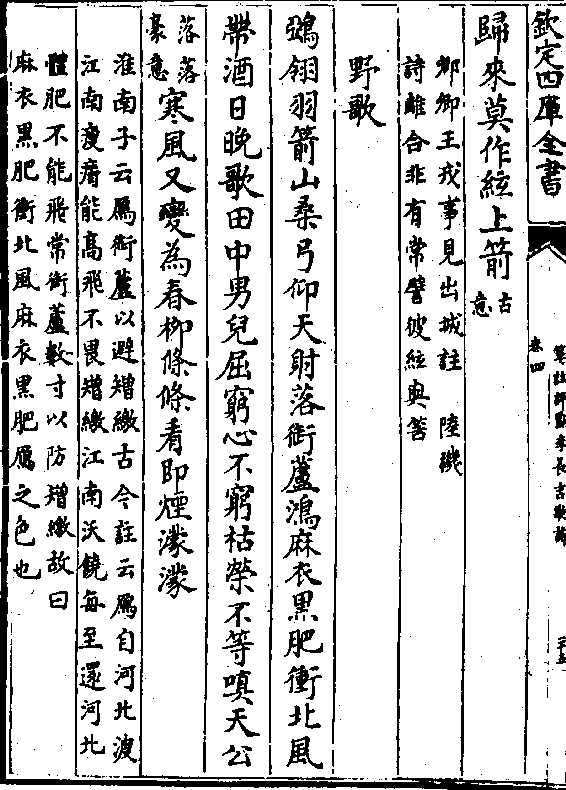 欽定四庫全書
卷四
箋註評點李長吉歌詩
二十五
歸來莫作絃上箭古意
鄉卿王戎事見出城註 陸璣
詩離合非有常譬彼絃與筈
野歌
鴉翎羽箭山桑弓仰天射落銜蘆鴻麻衣黑肥衝北風
帶酒日晚歌田中男兒屈窮心不窮枯榮不等嗔天公
落落豪意寒風又變為春柳條條看即煙濛濛
淮南子云鴈銜蘆以避矰繳古今註云鴈自河北渡
江南瘦瘠能高飛不畏矰繳江南沃饒每至還河北
體肥不能飛常銜蘆數寸以防矰繳故曰
麻衣黑肥衝北風麻衣黑肥鴈之色也